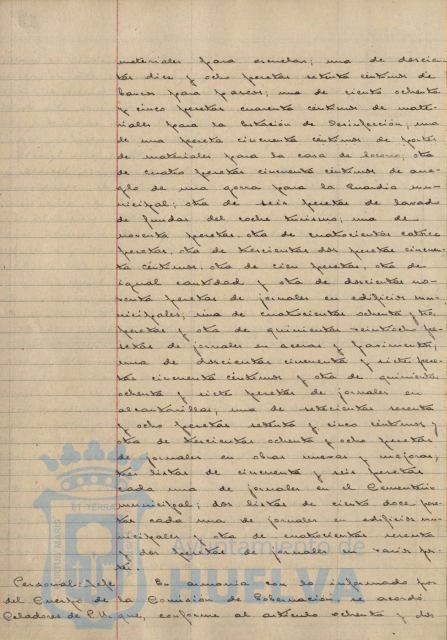 materiales para escuelas; una de doscien-
tas diez y ocho pesetas setenta céntimos de
bancos para paseos; una de ciento ochenta
y cinco pesetas cuarenta céntimos de mate-
riales para la Estación de Desinfección; una
de una peseta cincuenta céntimos de portes
de materiales para la casa de socorro; otra
de cuatro pesetas cincuenta céntimos de arre-
glo de una gorra para la Guardia mu-
nicipal; otra de seis pesetas de lavado
de fundas del coche turismo; una de
noventa pesetas, otra de cuatrocientas catorce
pesetas, otra de trescientas dos pesetas cincuen-
ta céntimos, otra de cien pesetas, otra de
igual cantidad y otra de doscientas no-
venta pesetas de jornales en edificios mu-
nicipales; una de cuatrocientas ochenta y tres
pesetas y otra de quinientas veintiocho pe-
setas de jornales en aceras y pavimentos;
una de doscientas cincuenta y siete pese-
tas cincuenta céntimos y otra de quinientas
ochenta y siete pesetas de jornales en
alcantarillas; una de setecientas sesenta
y ocho pesetas setenta y cinco céntimos y
otra de trescientas ochenta y ocho pesetas
de jornales en obras nuevas y mejoras;
tres listas de cincuenta y seis pesetas
cada una de jornales en el Cementerio
municipal; dos listas de ciento doce pese-
tas cada una de jornales en edificios mu-
nicipales y otra de cuatrocientas sesenta
y dos pesetas de jornales en
Personal: Jefe En armonía con lo informado por
del Cuerpo de la Comisión de Gobernación, se acordó
Celadores de conforme al artículo ochenta y dos
PORTUS MARIS ET TERRAE
Ayuntamiento de
HUELVA